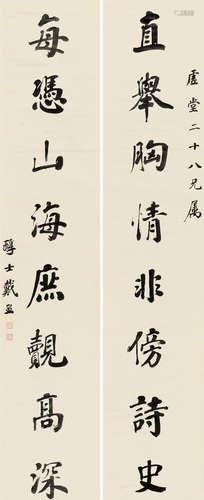 虗堂二十八兄属
直舉胸情非傍詩史
每憑山海庶覿高深
醇士戴熙